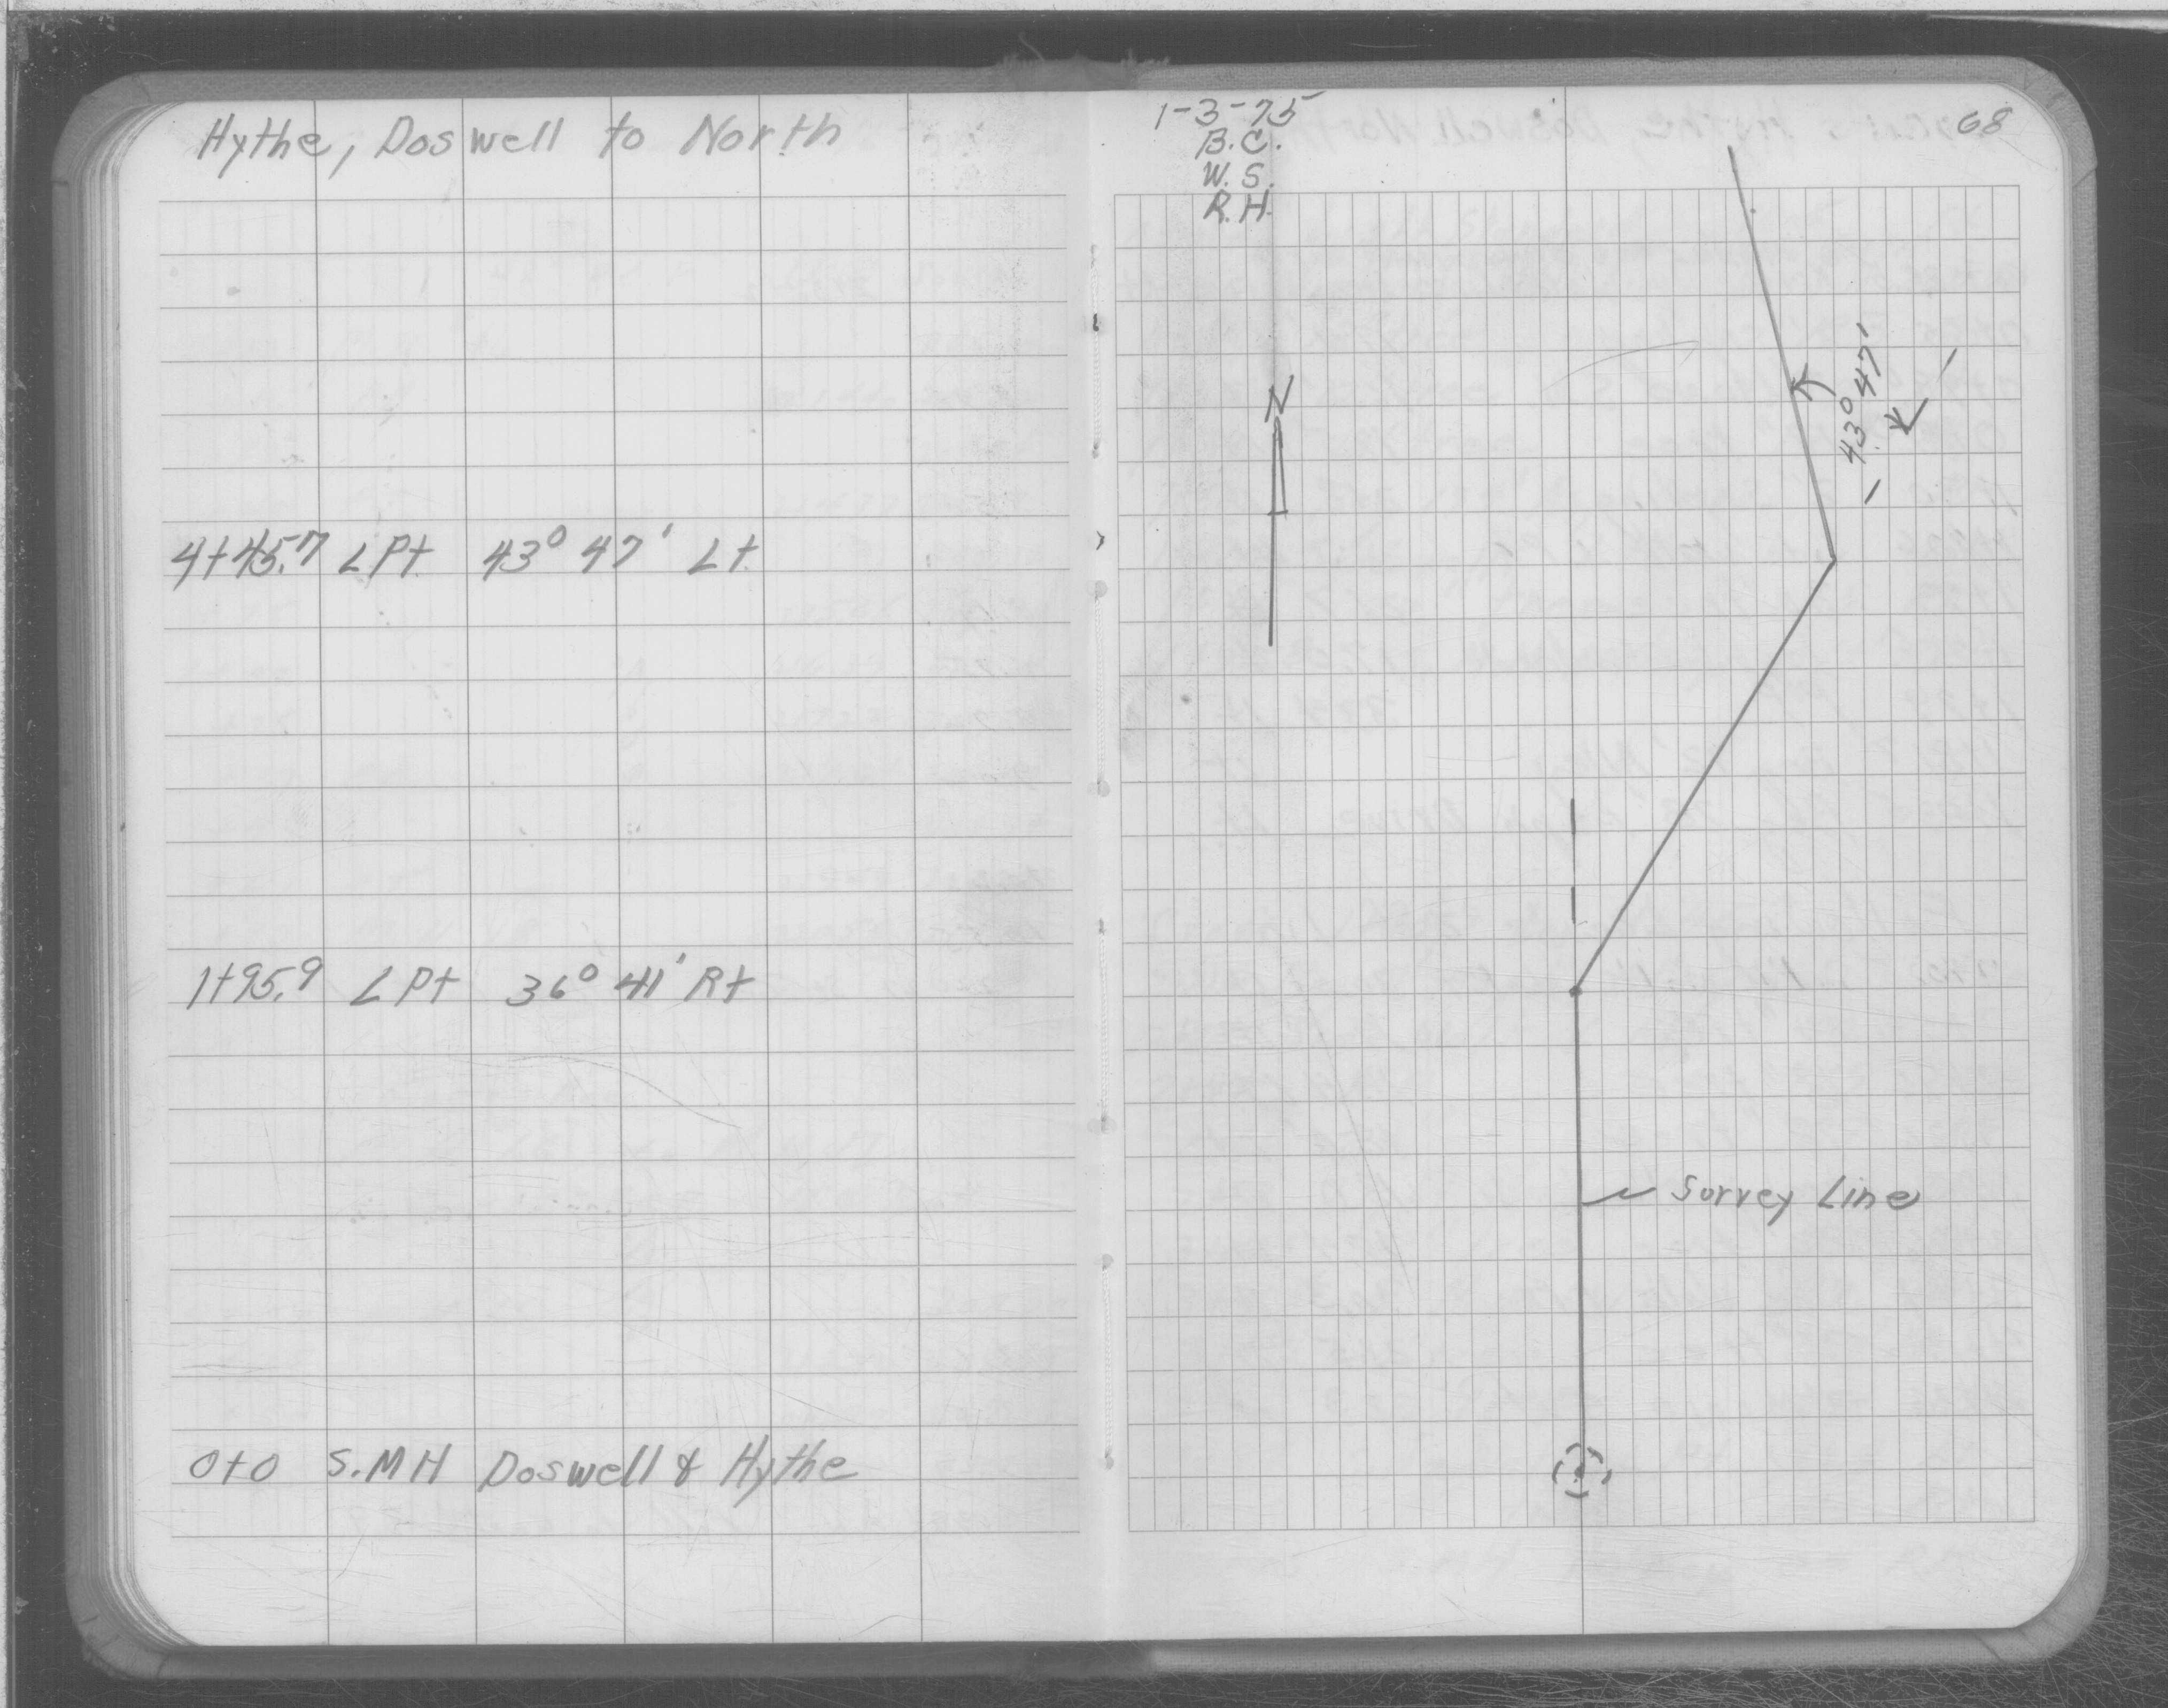 Hythe, Doswell to North
4+45.7 LPt 43° 47' Lt.
1+95.9 LPt 36° 41' Rt
0+0 S.MH Doswell & Hythe
1-3-75
B.C.
W.S.
R.H.
68
N
43° 47'
Survey Line